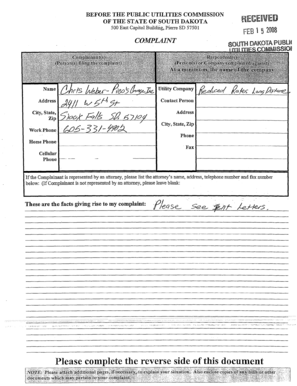 BEFORE THE PUBLIC UTILITIES COMMISSION
OF THE STATE OF SOUTH DAKOTA
500 East Capitol Building, Pierre SD 57501
RECEIVED
FEB 15 2008
SOUTH DAKOTA PUBLIC
UTILITIES COMMISSION
COMPLAINT
Complainant(s)
(Person(s) filing the complaint)
Respondent(s)
(Person(s) or Company complained against)
At a minimum, the name of the company
Name Chris Weber -
Address 2911 W 5th St
City, State, Zip Sioux Falls SD 57104
Work Phone 605-331-4902
Home Phone
Cellular Phone
Utility Company Reduced Rates Long Distance
Contact Person
Address
City, State, Zip
Phone
Fax
If the Complainant is represented by an attorney, please list the attorney's name, address, telephone number and fax number
below: (If Complainant is not represented by an attorney, please leave blank:
These are the facts giving rise to my complaint: Please see letters.
Please complete the reverse side of this document
NOTE: Please attach additional pages, if necessary, to explain your situation. Also enclose copies of any bills or other
documents which may pertain to your complaint.